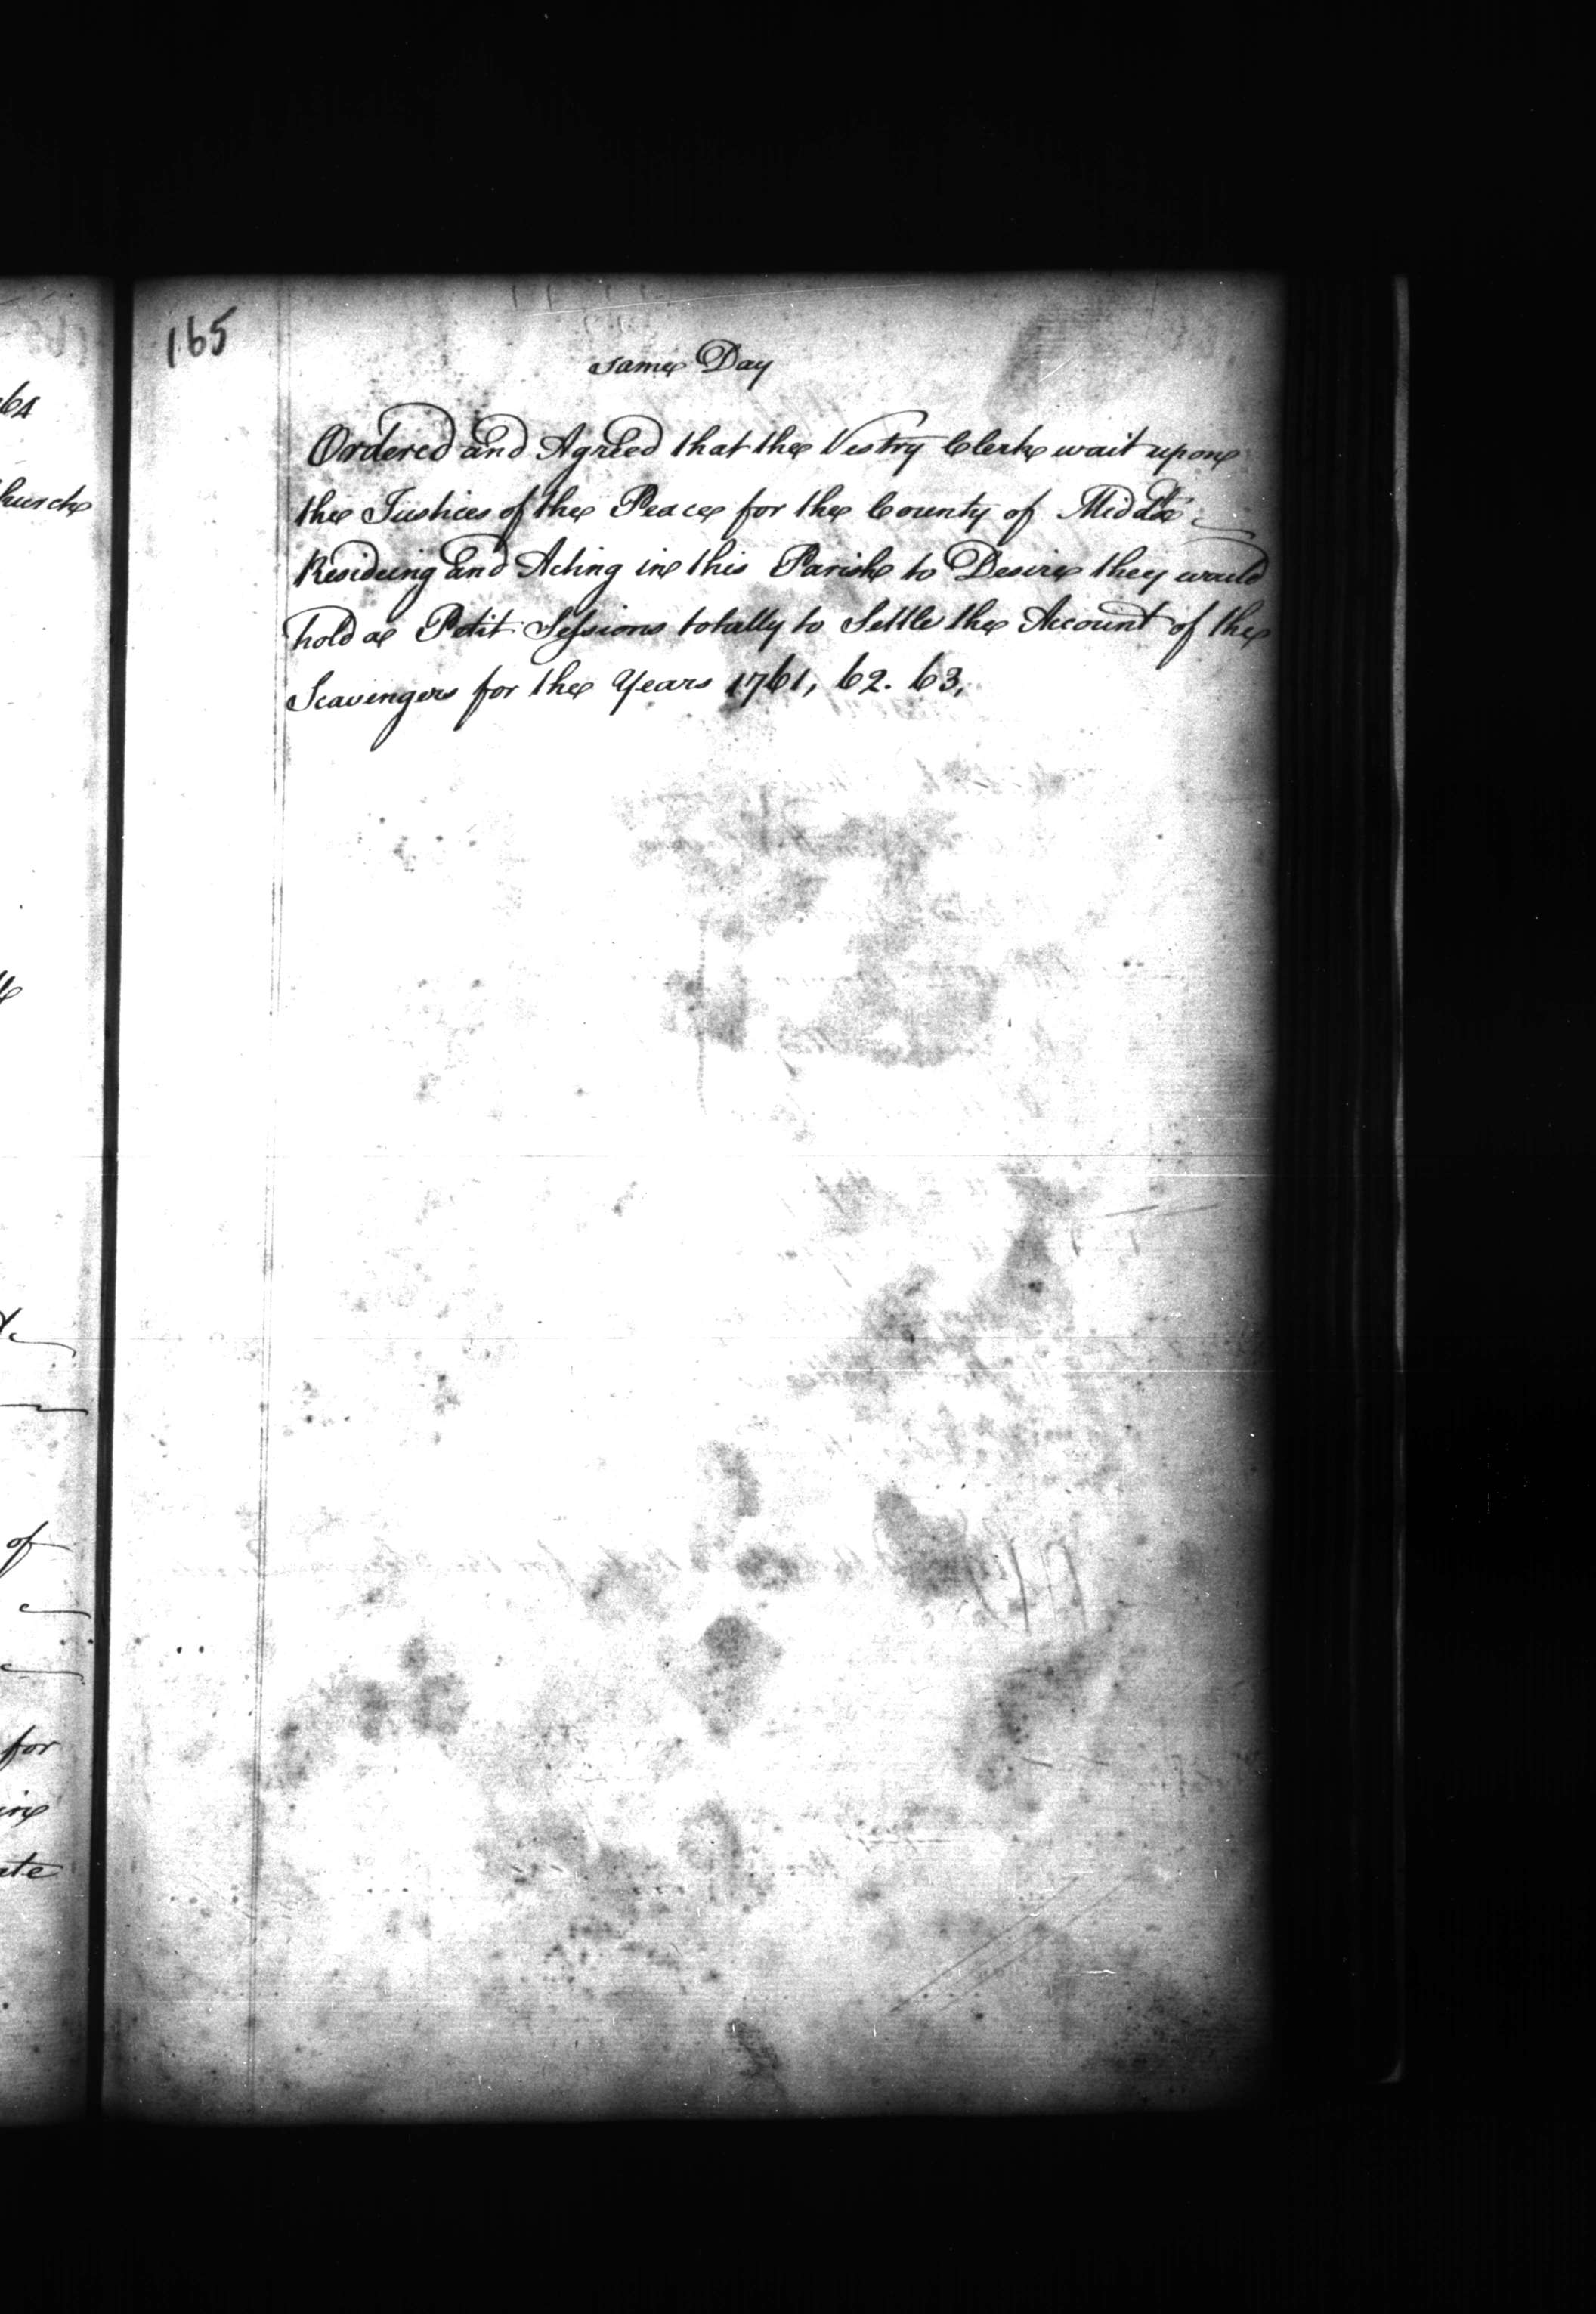 165
same Day
Ordered and Agreed that the Vestry Clerk wait upon
the Justices of the Peace for the County of Middx
Resideing and Acting in this Parish to Desire they would
hold a Petit Sessions totally to Settle the Account of the
Scavengers for the Years 1761, 62. 63,
64
hurch
of
for
ate